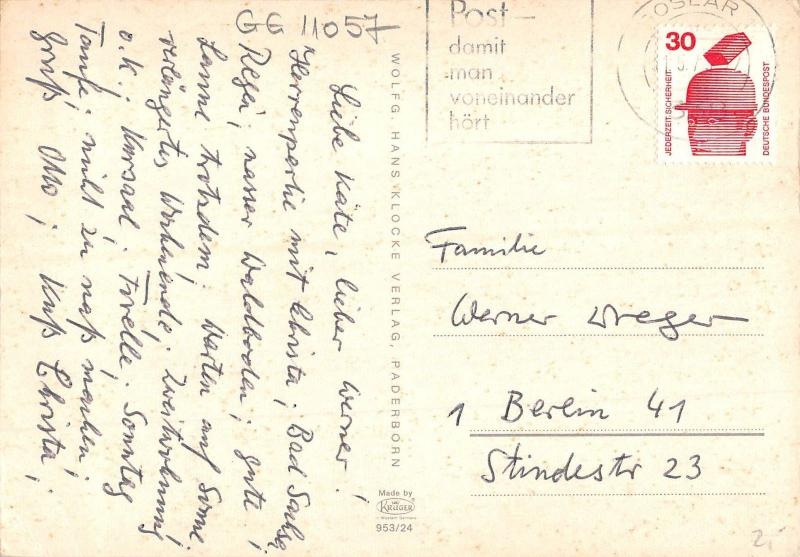 GG 11057
Liebe Käte, lieber Werner!
Herrenpartie mit Christa; Bad Salzg
Regen; nasser Waldboden; gute
Laune trotzdem. Warten auf Sonne.
verlängertes Wochenende. Zweitwohnung
o.k.; Kursaal. Forelle. Sonntag
Taufe; nicht zu naß machen!
Gruß Otto; Kuß Christa;
WOLFG. HANS KLOCKE VERLAG, PADERBORN
Made by
KRÜGER
Western Germany
953/24
Post –
damit
man
voneinander
hört
GOSLAR
30
JEDERZEIT SICHERHEIT
DEUTSCHE BUNDESPOST
Familie
Werner Dreger
1 Berlin 41
Stindestr 23
2,